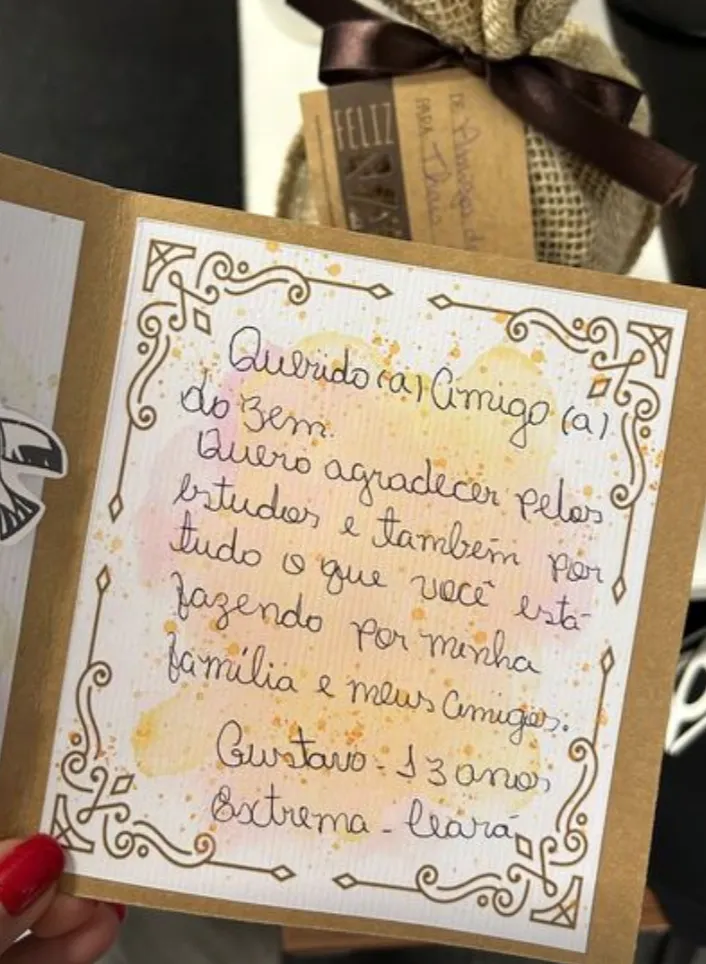 FELIZ
DE Amigos do
PARA Thais
Querido(a) Amigo(a)
do Bem.
Quero agradecer pelos
estudos e também por
tudo o que você está
fazendo por minha
família e meus amigos.
Gustavo - 13 anos
Extrema - Ceará